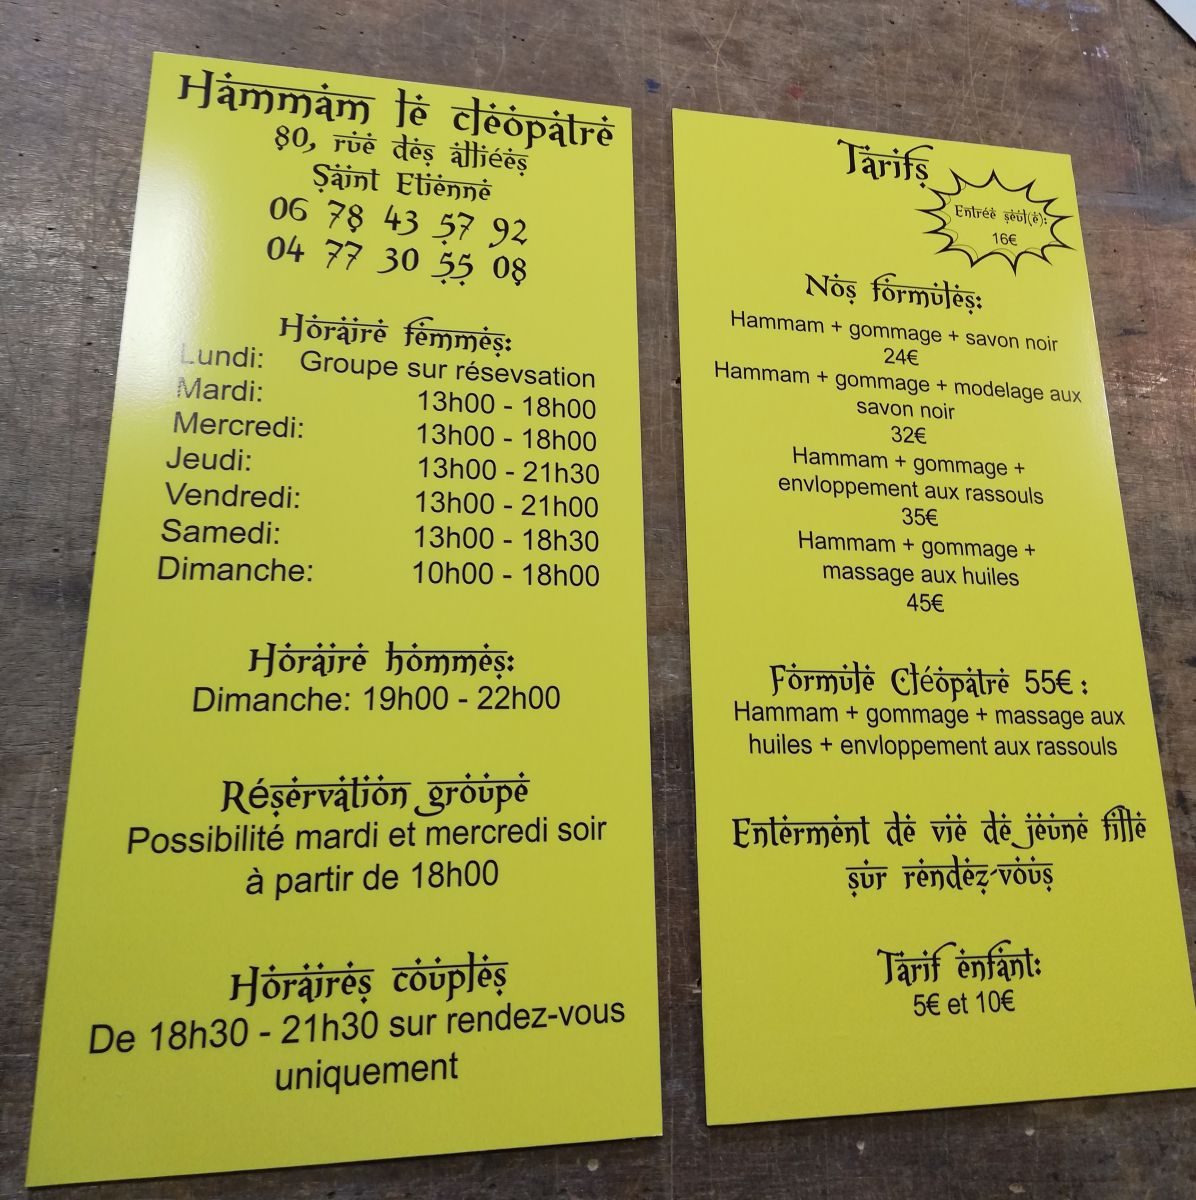 Hammam le cléopatre
80, rue des alliéés
Saint Etienne
06 78 43 57 92
04 77 30 55 08
Horaire femmes:
Lundi: Groupe sur résevsation
Mardi: 13h00 - 18h00
Mercredi: 13h00 - 18h00
Jeudi: 13h00 - 21h30
Vendredi: 13h00 - 21h00
Samedi: 13h00 - 18h30
Dimanche: 10h00 - 18h00
Horaire hommes:
Dimanche: 19h00 - 22h00
Réservation groupe
Possibilité mardi et mercredi soir
à partir de 18h00
Horaires couples
De 18h30 - 21h30 sur rendez-vous
uniquement
Tarifs
Entrée seul(e):
16€
Nos formules:
Hammam + gommage + savon noir
24€
Hammam + gommage + modelage aux
savon noir
32€
Hammam + gommage +
envloppement aux rassouls
35€
Hammam + gommage +
massage aux huiles
45€
Formule Cléopatre 55€ :
Hammam + gommage + massage aux
huiles + envloppement aux rassouls
Enterment de vie de jeune fille
sur rendez-vous
Tarif enfant:
5€ et 10€